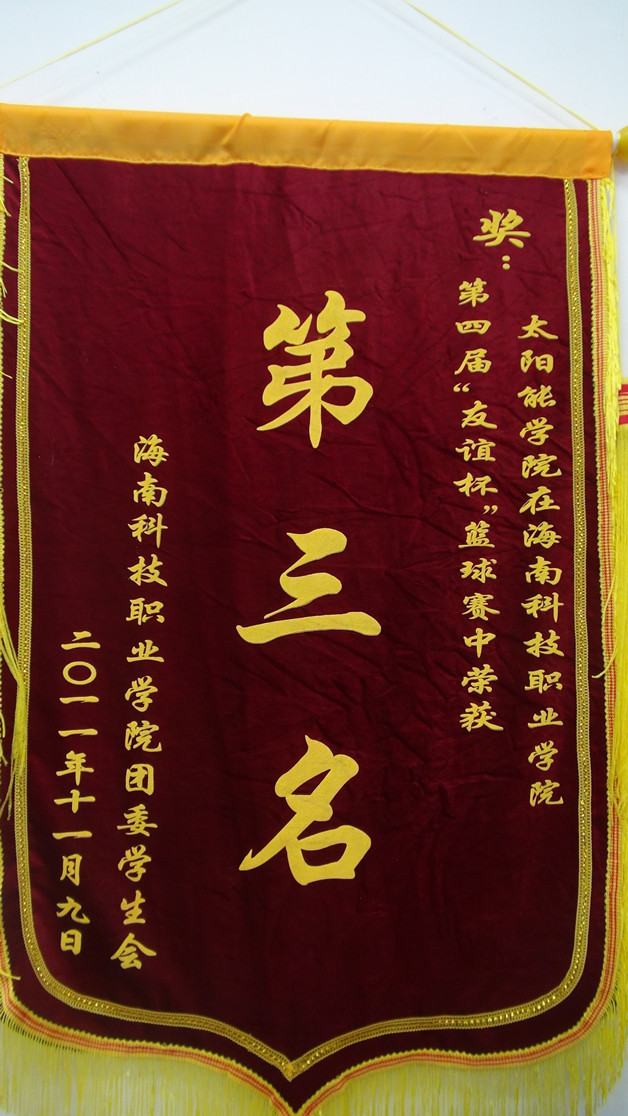 奖：
太阳能学院在海南科技职业学院
第四届“友谊杯”篮球赛中荣获
第三名
海南科技职业学院团委学生会
二〇一一年十一月九日